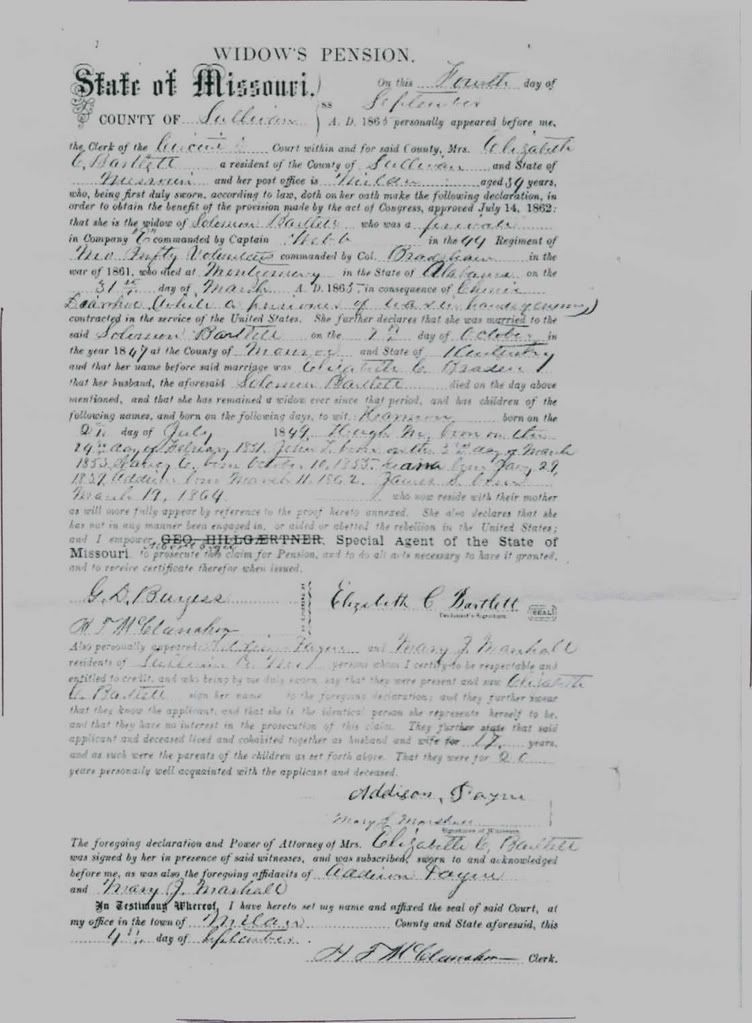 WIDOW'S PENSION.
State of Missouri, } On this Fourth day of
ss September
COUNTY OF Sullivan } A. D. 1865 personally appeared before me,
the Clerk of the Circuit Court within and for said County, Mrs. Elizabeth
C. Bartlett a resident of the County of Sullivan and State of
Missouri and her post office is Milan aged 39 years,
who, being first duly sworn, according to law, doth on her oath make the following declaration, in
order to obtain the benefit of the provision made by the act of Congress, approved July 14, 1862:
that she is the widow of Solomon Bartlett who was a private
in Company commanded by Captain Webb in the 44 Regiment of
Mo Infty Volunteers commanded by Col. Bradshaw in the
war of 1861, who died at Montgomery in the State of Alabama on the
31st day of March A. D. 1865 in consequence of Chronic
Diarrhoe while a prisoner of war in hands of enemy)
contracted in the service of the United States. She further declares that she was married to the
said Solomon Bartlett on the day of October in
the year 1847 at the County of Monroe and State of Kentucky
and that her name before said marriage was Elizabeth C.
that her husband, the aforesaid Solomon Bartlett died on the day above
mentioned, and that she has remained a widow ever since that period, and has children of the
following names, and born on the following days, to wit, born on the
day of July 1849. Hugh M. born on the
24th day of February 1851. John T. born on the day of March
1853. C. born October 10, 1855. born Jany 29,
1859. Addison born March 11, 1862. James S. born
March 19, 1864. who now reside with their mother
as will more fully appear by reference to the proof hereto annexed. She also declares that she
has not in any manner been engaged in, or aided or abetted the rebellion in the United States;
and I empower GEO. HILLGÆRTNER, Special Agent of the State of
Missouri to prosecute this claim for Pension, and to do all acts necessary to have it granted,
and to receive certificate therefor when issued.
G. D. Burgess Elizabeth C. Bartlett SEAL
H F McClanahan
Also personally appeared Addison Payne and Mary J. Marshall
residents of Sullivan persons whom I certify to be respectable and
entitled to credit, and who being by me duly sworn, say that they were present and saw Elizabeth
C. Bartlett sign her name to the foregoing declaration; and they further swear
that they know the applicant, and that she is the identical person she represents herself to be,
and that they have no interest in the prosecution of this claim. They further state that said
applicant and deceased lived and cohabited together as husband and wife for 17 years,
and as such were the parents of the children as set forth above. That they were for 20
years personally well acquainted with the applicant and deceased.
Addison Payne
Mary J. Marshall
Signatures of Witnesses
The foregoing declaration and Power of Attorney of Mrs. Elizabeth C. Bartlett
was signed by her in presence of said witnesses, and was subscribed, sworn to and acknowledged
before me, as was also the foregoing affidavits of Addison Payne
and Mary J. Marshall
In Testimony Whereof, I have hereto set my name and affixed the seal of said Court, at
my office in the town of Milan County and State aforesaid, this
4th day of September.
H F McClanahan Clerk.